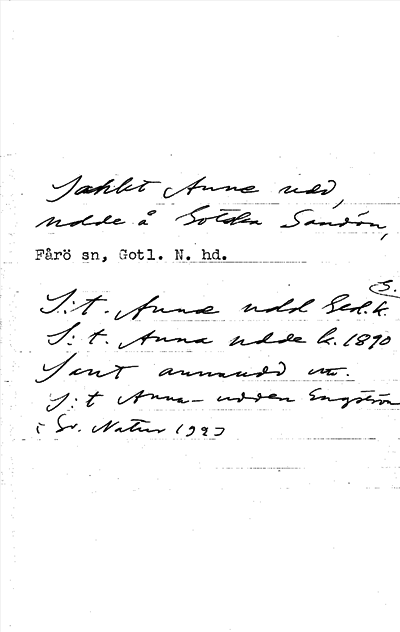 Sankt Anne udd,
udde å Gotska Sandön,
Fårö sn, Gotl. N. hd.
S.
S:t. Annæ udd Ged.k.
S:t. Anna udde k. 1890
Sant annaudd
S:t Anna-udden Engström
i Sv. Natur 1927